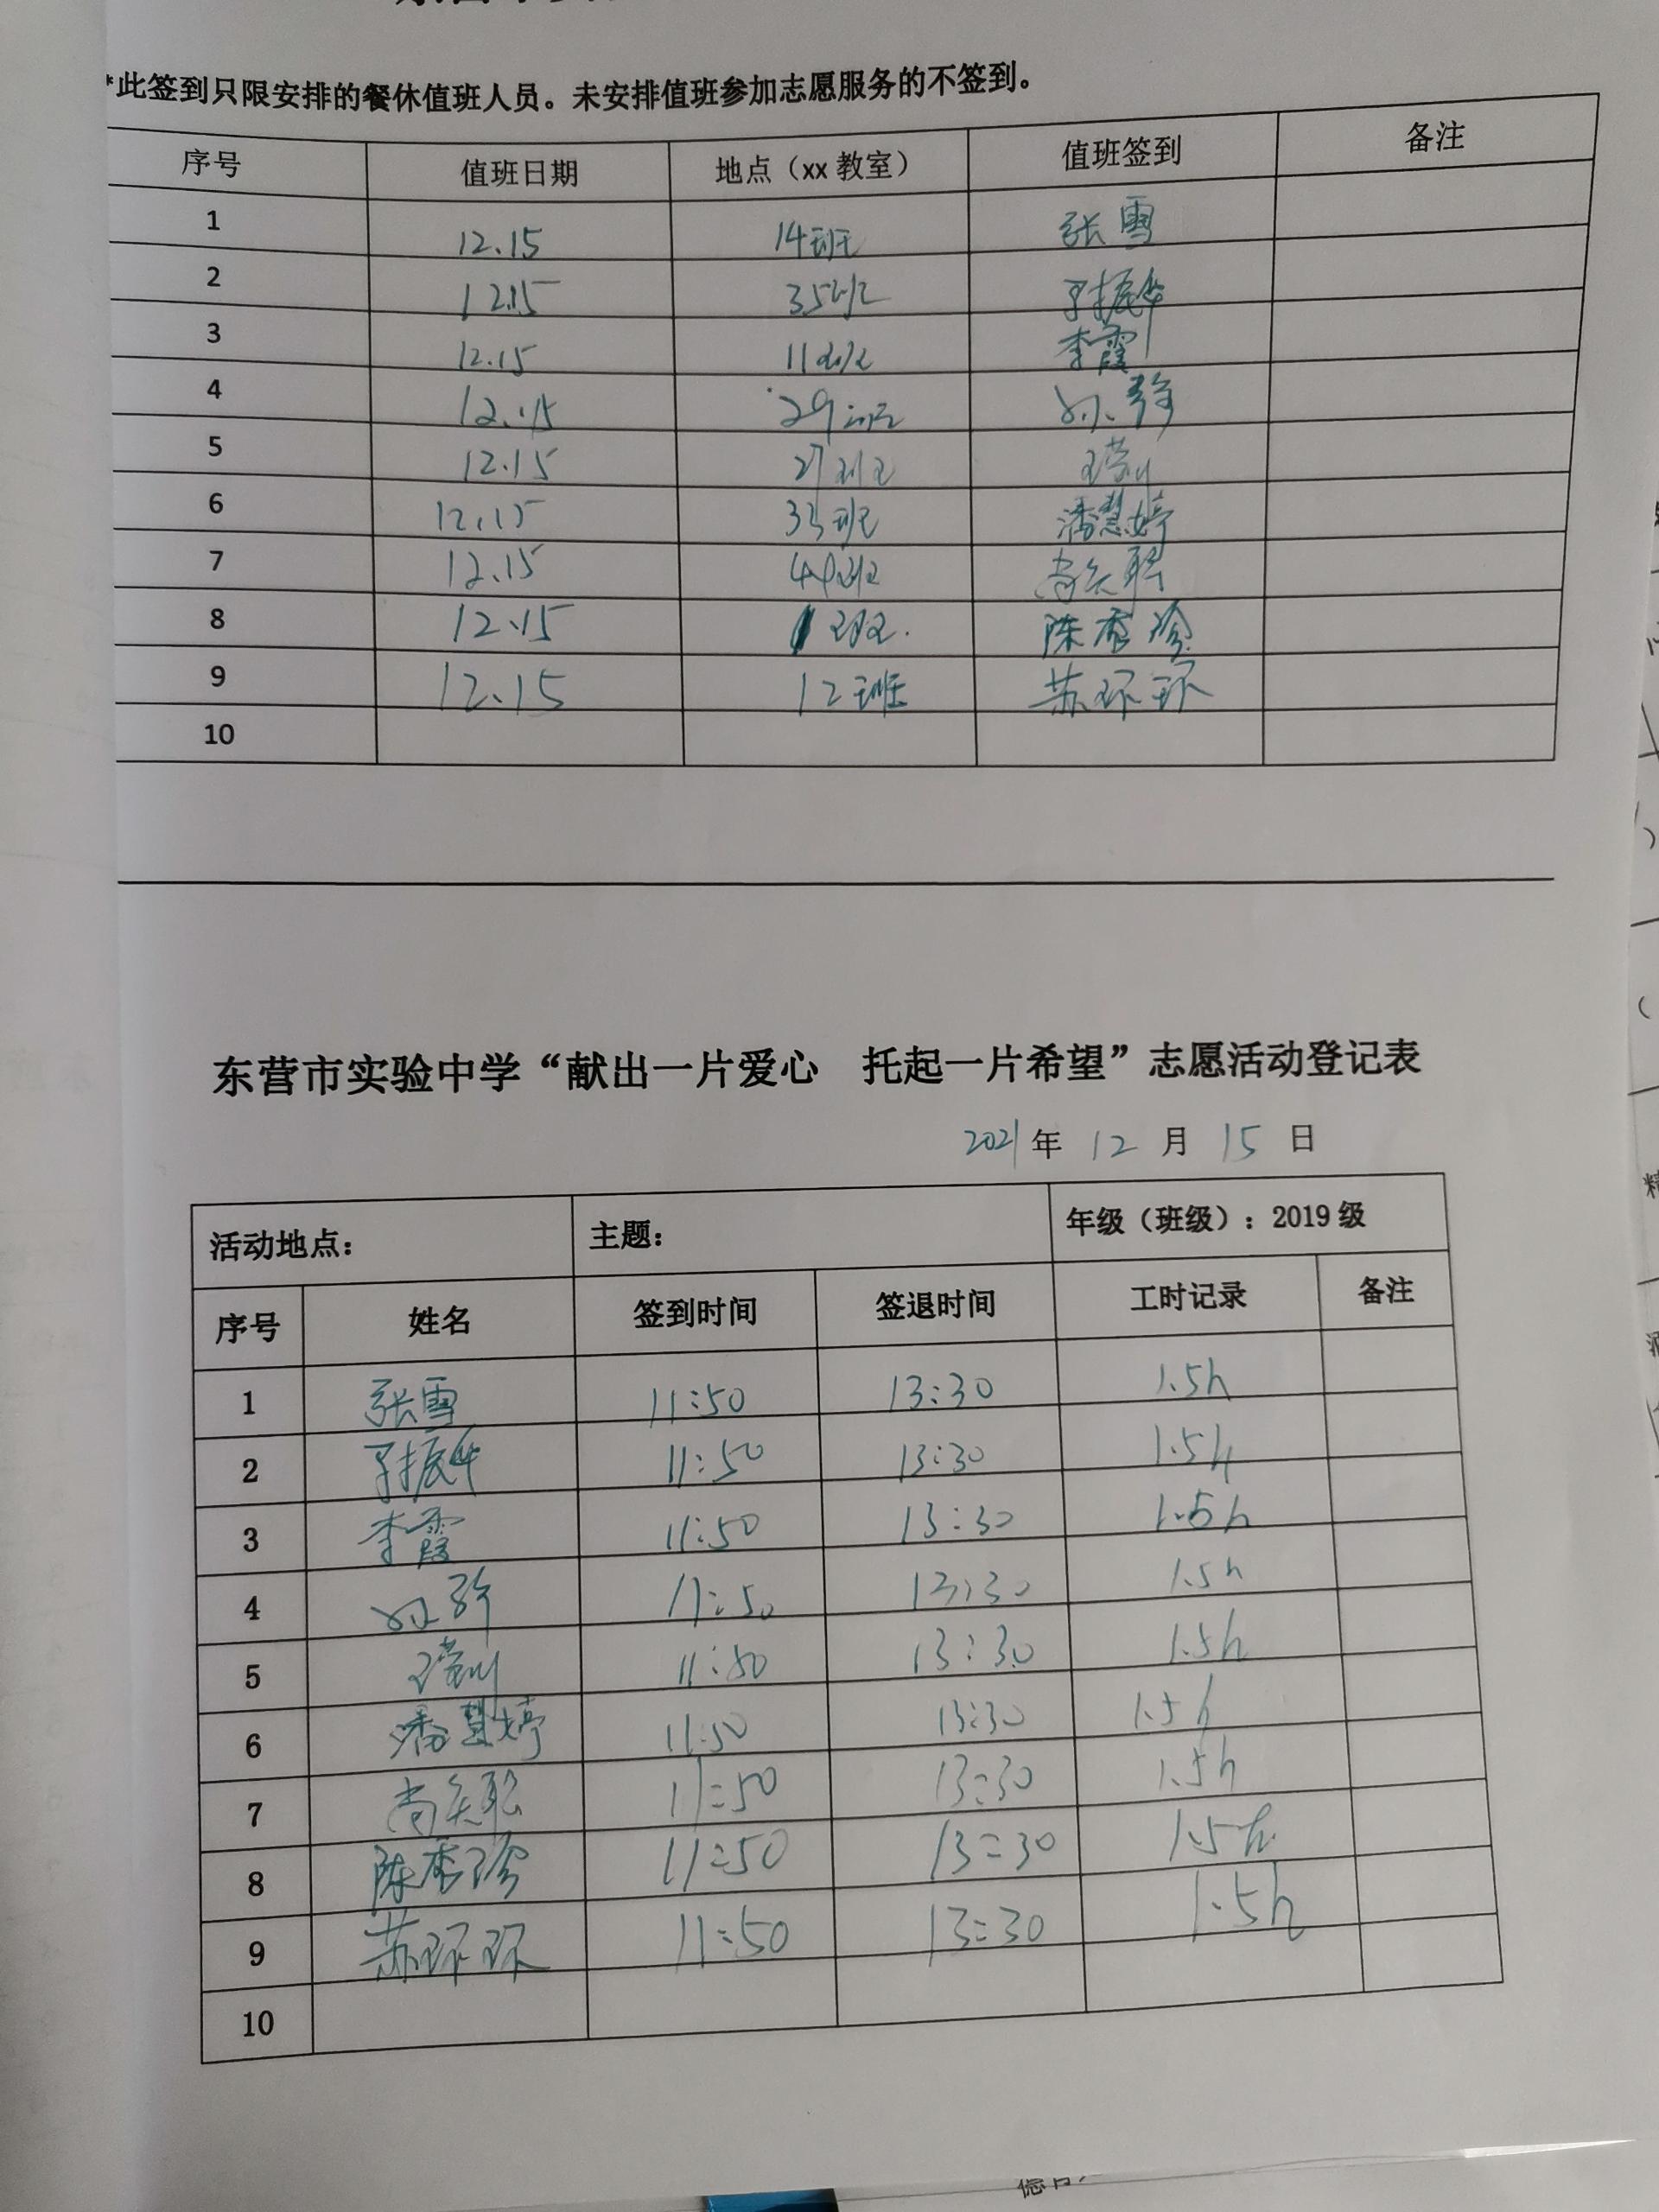 *此签到只限安排的餐休值班人员。未安排值班参加志愿服务的不签到。
序号 值班日期 地点（xx 教室） 值班签到 备注
1 12.15 14班 张雪
2 12.15 35班 振华
3 12.15 11班 李霞
4 12.15 29班 孙静
5 12.15 27班
6 12.15 33班 潘慧婷
7 12.15 44班 尚
8 12.15 1班. 陈秀珍
9 12.15 12班 苏环环
10
东营市实验中学“献出一片爱心 托起一片希望”志愿活动登记表
2021 年 12 月 15 日
活动地点： 主题： 年级（班级）：2019 级
序号 姓名 签到时间 签退时间 工时记录 备注
1 张雪 11:50 13:30 1.5h
2 振华 11:50 13:30 1.5h
3 李霞 11:50 13:30 1.5h
4 孙静 11:50 13:30 1.5h
5 11:50 13:30 1.5h
6 潘慧婷 11:50 13:30 1.5h
7 尚 11:50 13:30 1.5h
8 陈秀珍 11:50 13:30 1.5h
9 苏环环 11:50 13:30 1.5h
10